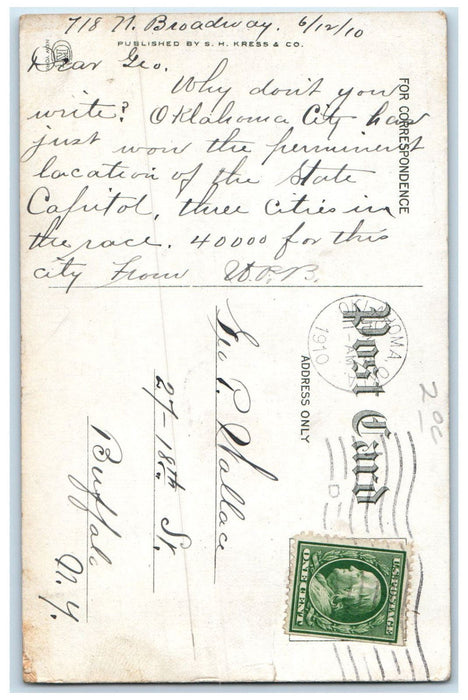 718 N. Broadway. 6/12/10
PUBLISHED BY S. H. KRESS & CO.
Dear Geo.
Why don't you
write? Oklahoma City has
just won the perminent
location of the State
Capitol, three cities in
the race. 40000 for this
city From W.P.B.
FOR CORRESPONDENCE
Post Card
ADDRESS ONLY
OKLAHOMA
11-AM
1910
20c
Geo P. Wallace
27-18th St.
Buffalo
N.Y.
U.S. POSTAGE
ONE CENT